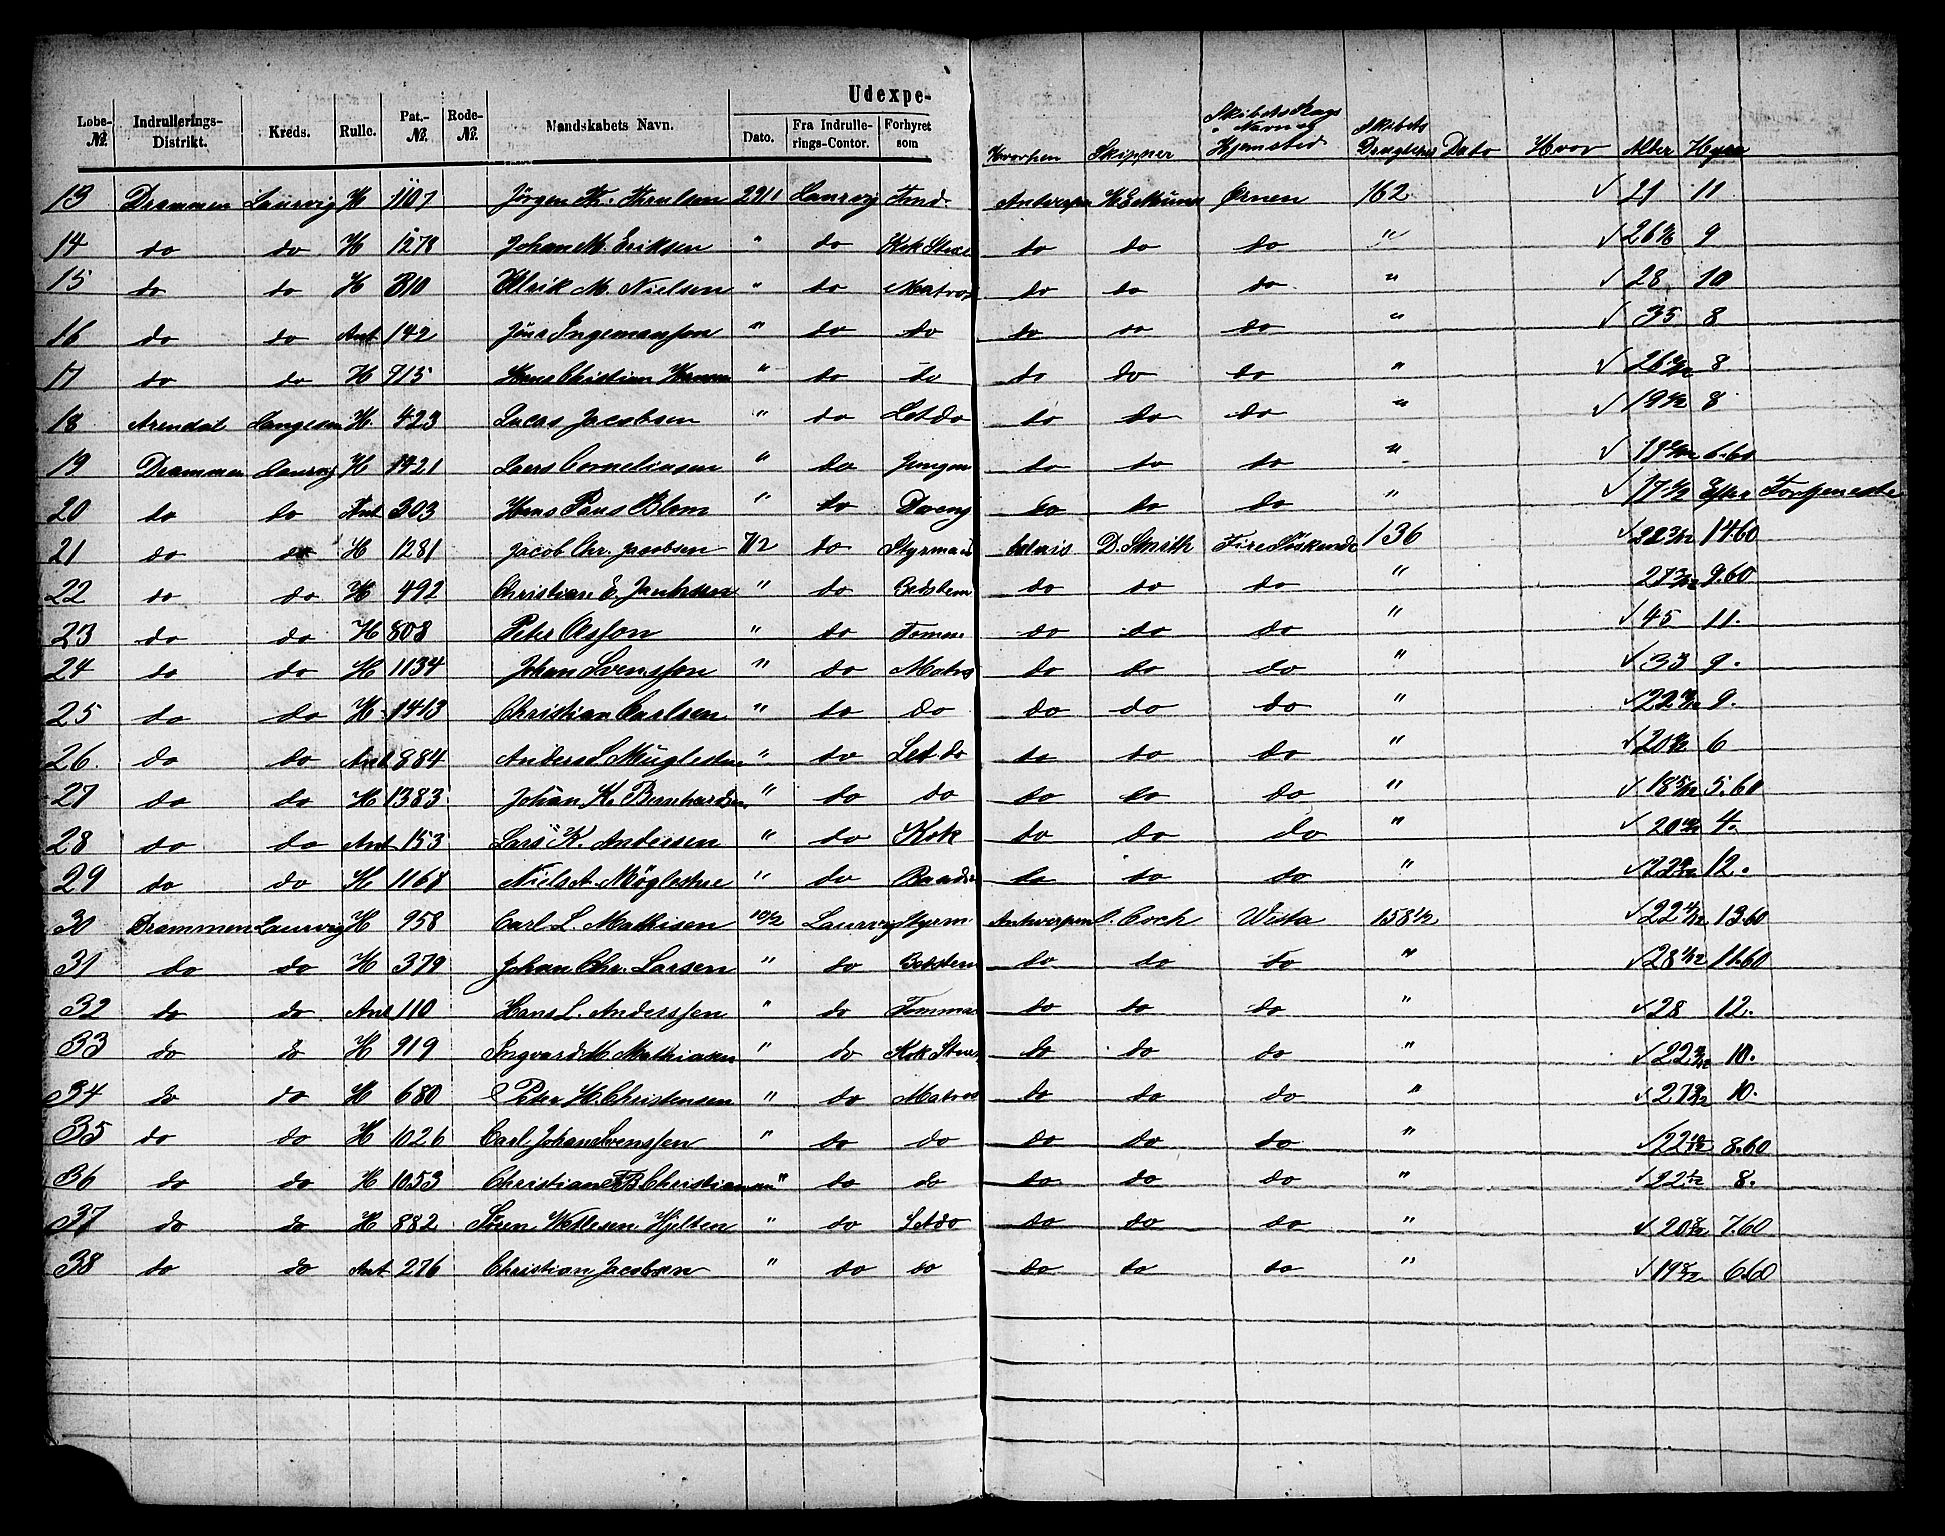 Udexpe-
Løbe-№. Indrullerings-Distrikt. Kreds. Rulle. Pat.-№. Rode-№. Mandskabets Navn. Dato. Fra Indrullerings-Contor. Forhyret som Hvorhen Skipper Skibets Navn Hjemsted Skibets Drægtighed Dato Hvor Alder Hyre
13 Drammen Laurvig H 1107 Jörgen Th. 29/1 Laurvig Antwerpen Ørnen 162 √ 21 11
14 do do H 1278 Johan M. Eriksen " do Kok do do do " √ 26 9
15 do do H 310 Ulrik M. Nielsen " do Matros do do do " √ 28 10
16 do do Ant 142 Jöns Ingemansson " do do do do do " √ 35 8
17 do do H 715 Hans Christian Hansen " do do do do do " √ 26 8
18 Arendal Langesun H. 423 Lucas Jacobsen " do Letdo do do do " √ 19 8
19 Drammen Laurvig H 1421 Lars Corneliusen " do Jungm do do do " √ 19 6.60
20 do do Ant 303 Hans Paus Blom " do Dreng do do do " √ 17 Efter Fortjeneste
21 do do H 1281 Jacob Chr. Jacobsen 7/2 do Styrmand Calais D. Smith Fire Söskende 136 √ 22 14.60
22 do do H 492 Christian E. " do do do do " 27 9.60
23 do do H 808 Peter Olsson " do do do do " √ 45 11.
24 do do H 1134 Johan Svensson " do Matros do do do " √ 33 9.
25 do do H 1413 Christian Carlsen " do do do do do " √ 22 9.
26 do do Ant 384 Anders " do Letdo do do do " √ 20 6
27 do do H 1383 Johan K. Bernhardsen " do do do do do " √ 18 5/12 5.60
28 do do Ant 153 Lars K. Andersen " do Kok do do do " √ 20 4.
29 do do H 1167 Niels A. Möglestue " do do do do " √ 22 12.
30 Drammen Laurvig H 958 Carl L. Mathisen 10/2 Laurvig Styrm Antwerpen C. Coch Wista 158 1/2 √ 22 13.60
31 do do H 379 Johan Chr. Larsen " do do do do " √ 28 11.60
32 do do Ant 110 Hans L. Anderssen " do Tømma do do do " √ 28 12.
33 do do H 919 Ingvard M. Mathiasen " do Kok do do do " √ 22 10.
34 do do H 680 Peter H. Christensen " do Matros do do do " √ 27 10.
35 do do H 1026 Carl Johan Svenssen " do do do do do " √ 22 10/12 8.60
36 do do H 1053 Christian B Christiansen " do do do do do " √ 22 8.
37 do do H 882 Sören Hjelten " do Letdo do do do " √ 20 7.60
38 do do Ant 276 Christian Jacobsen " do do do do do " √ 19 6.60